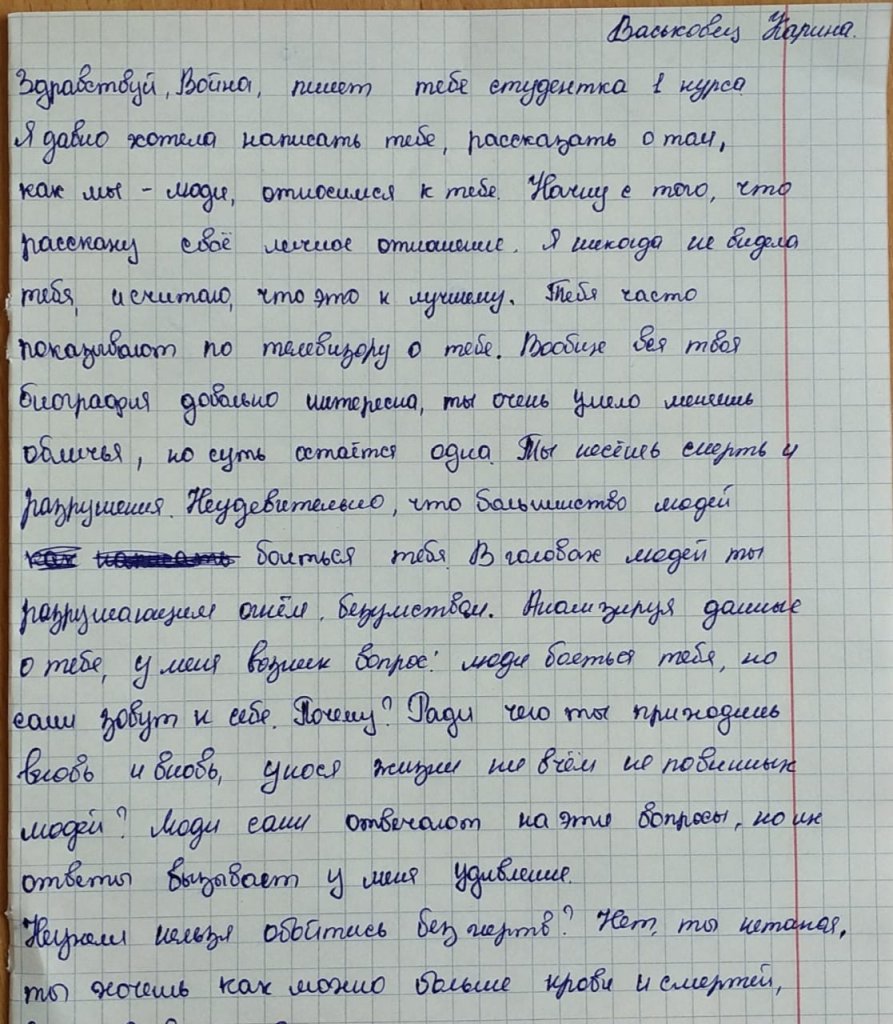 Васьковец Карина.
Здравствуй, Война, пишет тебе студентка 1 курса
Я давно хотела написать тебе, рассказать о том,
как мы - люди, относимся к тебе. Начну с того, что
расскажу своё личное отношение. Я никогда не видела
тебя, и считаю, что это к лучшему. Тебя часто
показывают по телевизору о тебе. Вообще вся твоя
биография довольно интересна, ты очень умело меняешь
обличья, но суть остаётся одна. Ты несёшь смерть и
разрушения. Неудевительно, что большинство людей
боиться тебя. В головах людей ты
разрушающим огнём, безумством. Анализируя данные
о тебе, у меня возник вопрос: люди бояться тебя, но
сами зовут к себе. Почему? Ради чего ты приходишь
вновь и вновь, унося жизни ни в чём не повинных
людей? Люди сами отвечают на эти вопросы, но их
ответы вызывает у меня удивление.
Неужели нельзя обойтись без жертв? Нет, ты не такая,
ты хочешь как можно больше крови и смертей,